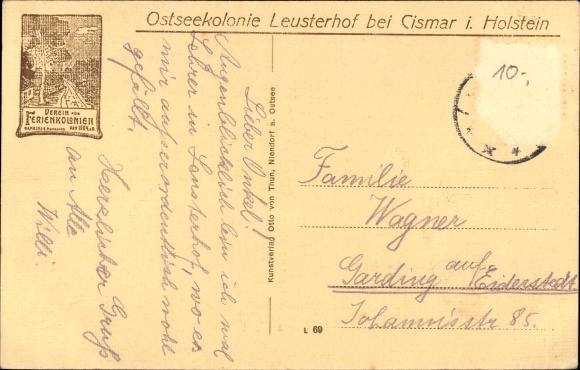 Ostseekolonie Leusterhof bei Cismar i. Holstein
VEREIN FÜR
FERIENKOLONIEN
VON 1884
10.-
Lieber Onkel!
Augenblicklich bin ich mal
Lehrer in Leusterhof, wo es
mir außerordentlich wohl
gefällt.
Herzlicher Gruß
an Alle
Willi.
Kunstverlag Otto von Thun, Niendorf a. Ostsee
Familie
Wagner
Garding auf Eiderstedt.
Johannisstr 85.
L 69